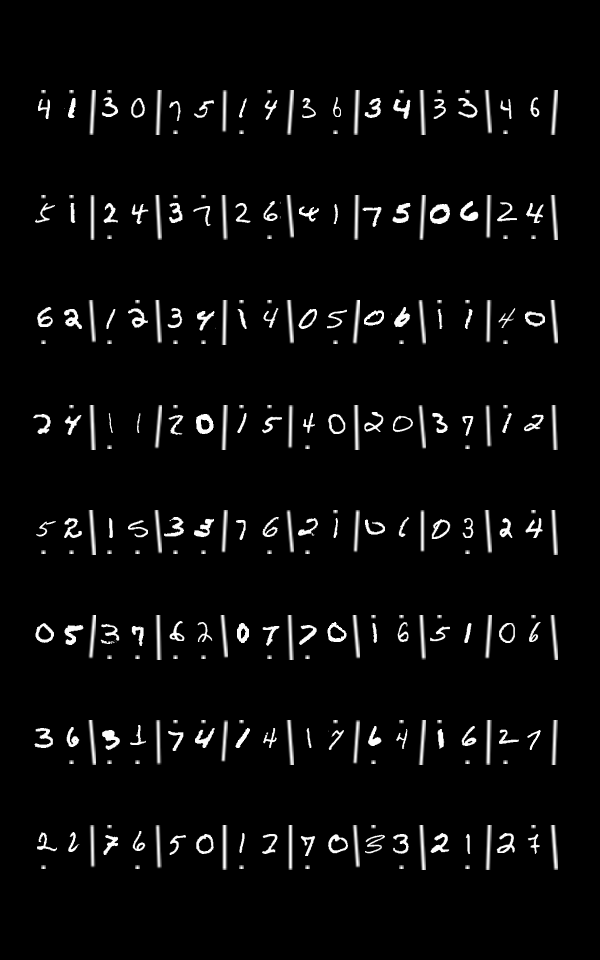 4 1 | 3 0 | 7 5 | 1 4 | 3 6 | 3 4 | 3 3 | 4 6 |
5 1 | 2 4 | 3 7 | 2 6 | 4 1 | 7 5 | 0 6 | 2 4 |
6 2 | 1 2 | 3 4 | 1 4 | 0 5 | 0 6 | 1 1 | 4 0 |
2 4 | 1 1 | 2 0 | 1 5 | 4 0 | 2 0 | 3 7 | 1 2 |
5 2 | 1 5 | 3 3 | 7 6 | 2 1 | 0 6 | 0 3 | 2 4 |
0 5 | 3 7 | 6 2 | 0 7 | 7 0 | 1 6 | 5 1 | 0 6 |
3 6 | 3 1 | 7 4 | 1 4 | 1 7 | 6 4 | 1 6 | 2 7 |
2 2 | 7 6 | 5 0 | 1 2 | 7 0 | 3 3 | 2 1 | 2 7 |